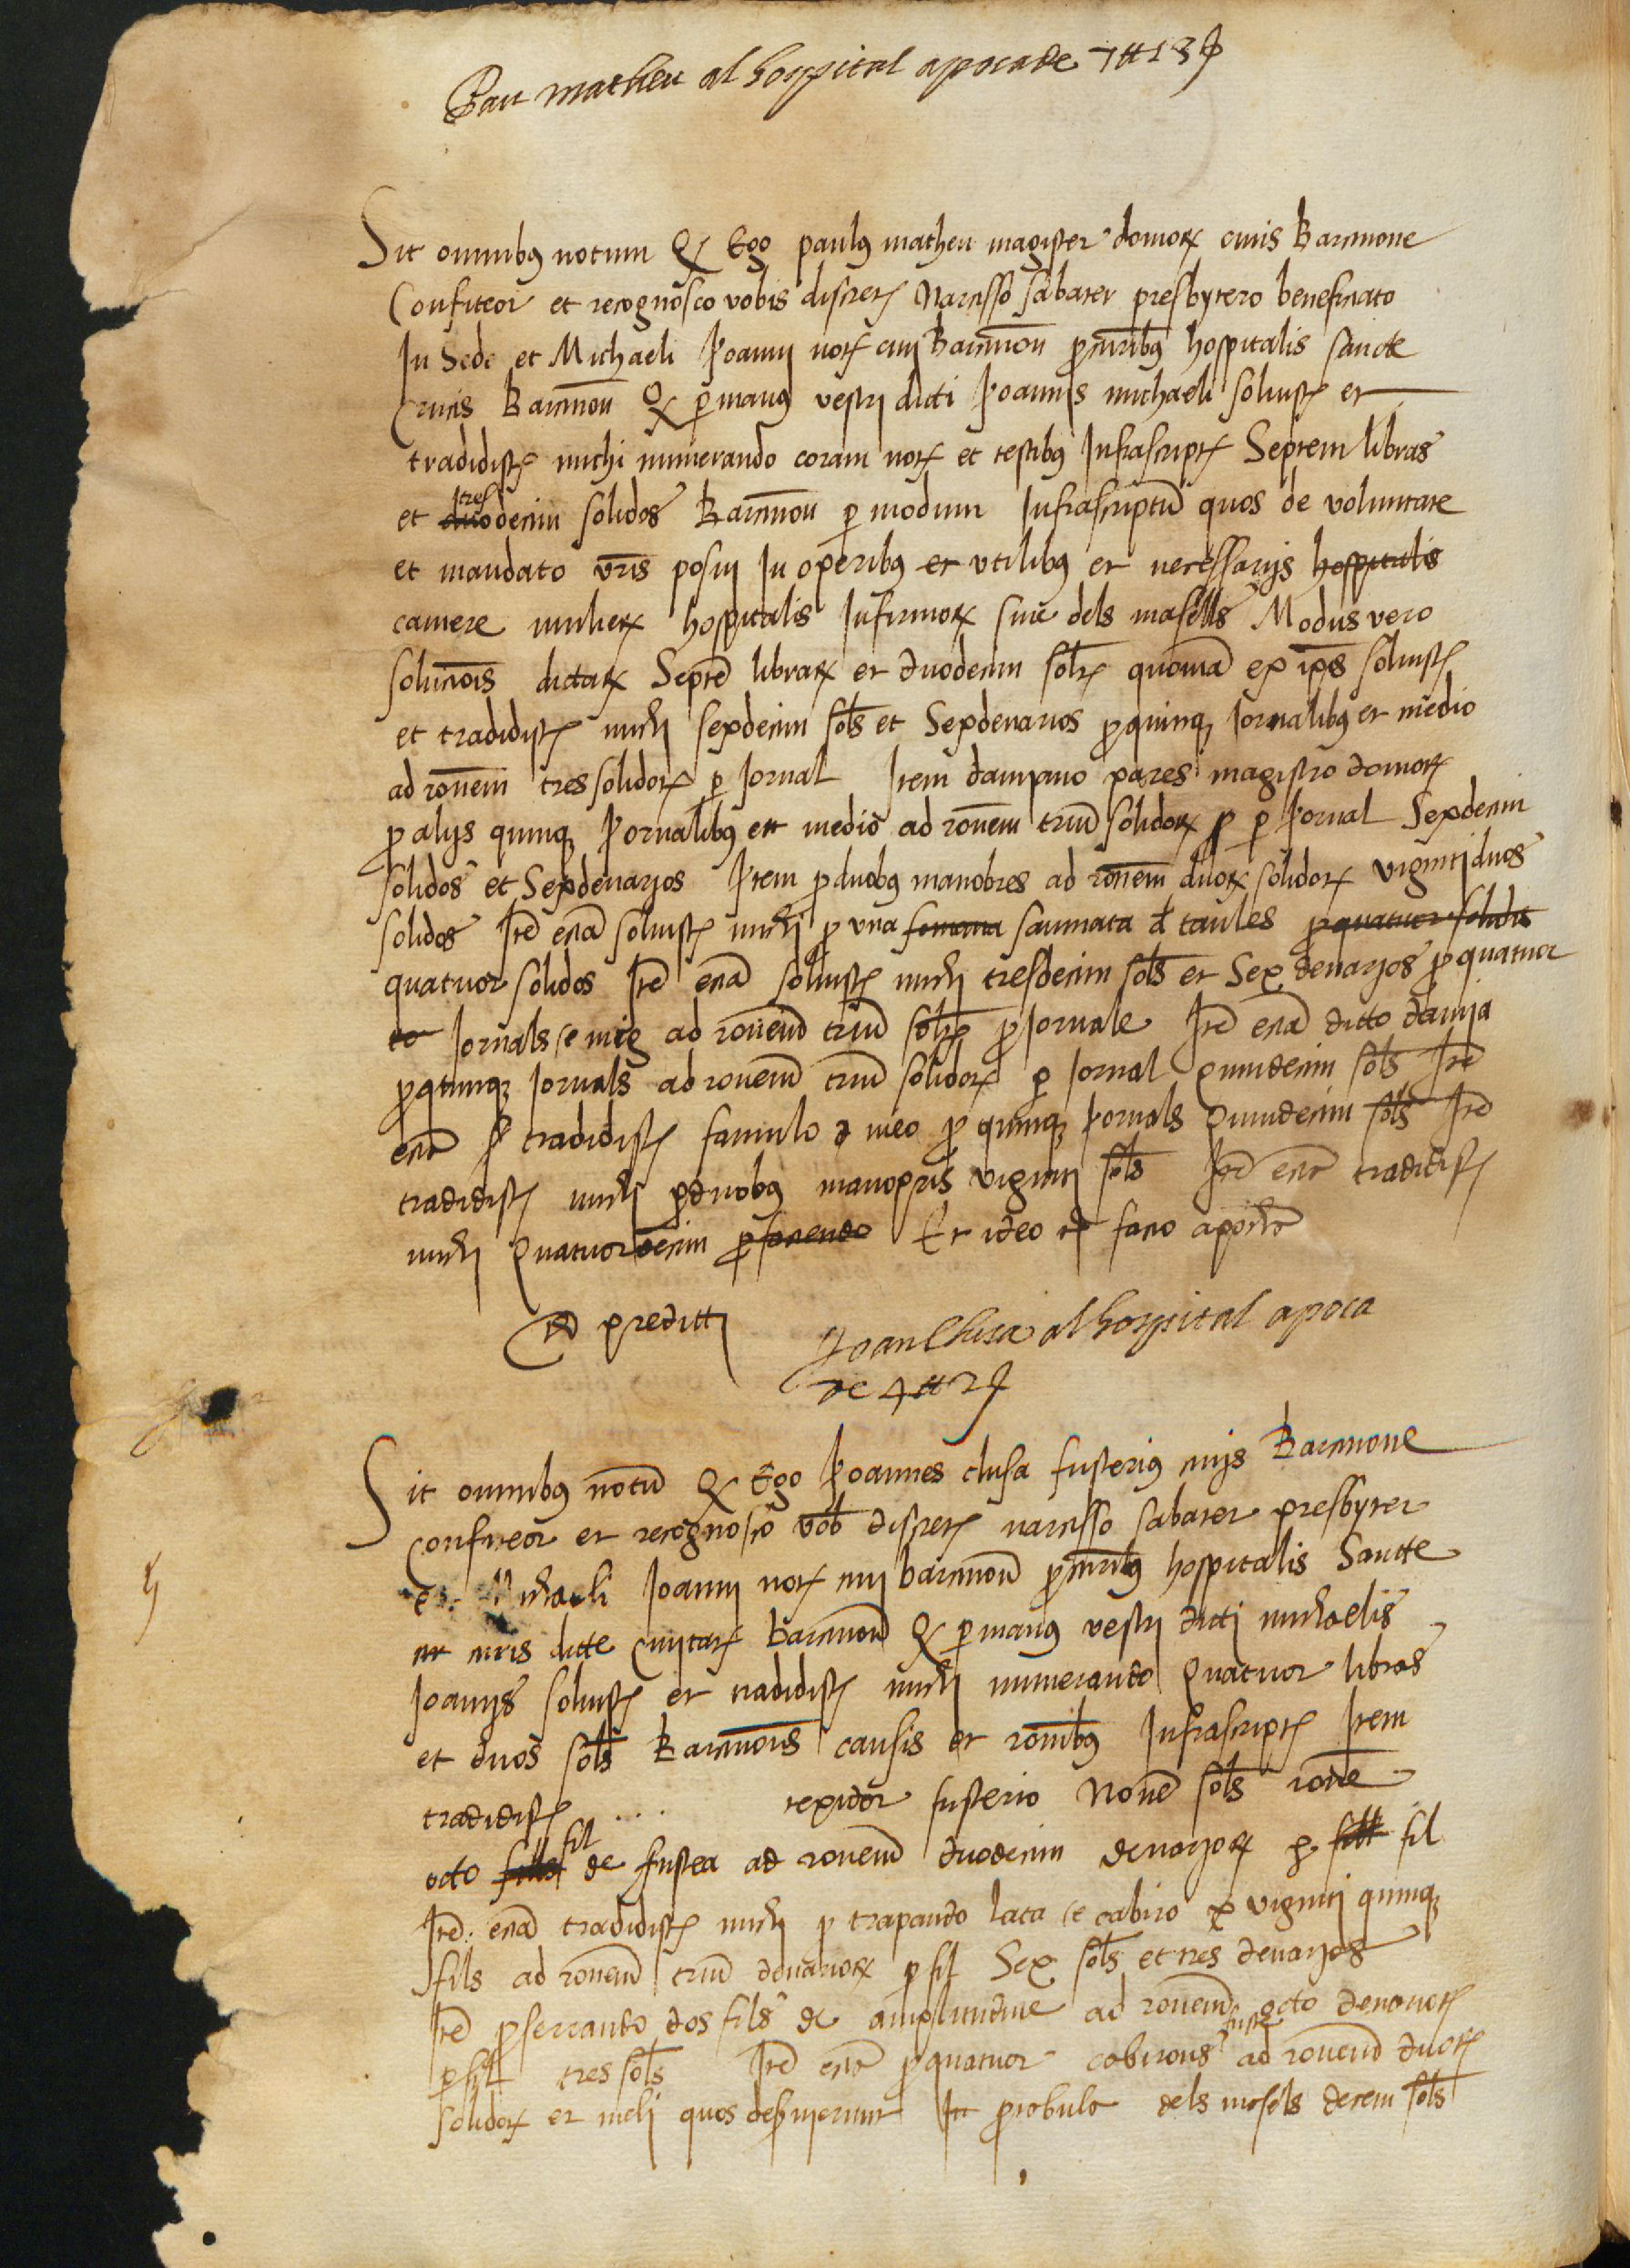 Pau matheu al hospital apoca de 7 tt 13 ẞ
Sit omnibus notum Q Ego paulus matheu magister domor civis Barcinone
Confiteor et recognosco vobis discret Narcisso sabater presbytero beneficiato
In Sede et Michaeli Joanni not civi Barcinon procuribus hospitalis sancte
Crucis Barcinon Q per manus vestri dicti Joannis michaeli solvist et
tradidist michi numerando coram not et testibus Infrascript Septem libras
et duo tres decim solidos Barcinon per modum Infrascriptu quos de voluntate
et mandato vris posui In operibus et utilibus et necessarijs hospitalis
camere mulier hospitalis Infirmor sive dels masells Modus vero
solucois dictar Septe librar et duodecim sol quonia ex ipis solvist
et tradidist michi sexdecim sols et Sexdenarios pro quinq Jornalibus et medio
ad ronem tres solidor per Jornal Item pares magistro domor
pro alijs quinq Jornalibus et medio ad ronem triu solidor per Jornal Sexdecim
solidos et Sexdenarjos Item pro duobus manobres ad ronem duor solidor vigintiduos
solidos Ite etia solvist michi pro una saumata d taules pro quatuor solidis
quatuor solidos Ite etia solvist michi tresdecim sols et Sex denarjos pro quatuor
to Jornals e mig ad ronem triu sol pro Jornale Ite etia ditto damia
pro quinq Jornals ad ronem triu solidor per Jornal Quindecim sols Ite
etia tradidist famulo meo pro quinq Jornals Quindecim sols Ite
tradidist michi pro duobus manopris viginti sols Ite etia tradidist
michi Quatuordecim pro faciendo Et ideo facio apocha
preditti
Joan Clusa al hospital apoca
de 4 tt 2 ẞ
Sit omnibus notu Q Ego Joannes clusa fusterius civis Barcinone
Confiteor et recognosco vob discret narcisso sabater presbyter
et Michaeli Joanni not civi barcinon procuribus hospitalis Sancte
crucis dicte Civitat Barcinon Q per manus vestri dicti michaelis
Joannis solvist et tradidist michi numerando Quatuor libras
et duos sols Barcinonis causis et ronibus Infrascript Item
tradidist .... texidor fusterio Nove sols rone
octo fills fil de fustea ad ronem duodecim denarjor per fill fil
Ite etia tradidist michi per trapando lata e cabiro viginti quinq
fils ad ronem triu denarior per fil Sex sols et tres denarjos
Ite pro serrando dos fils de amplitudine ad ronem octo denarior
per fil tres sols Ite etia pro quatuor cabirons fuste ad ronem duor
solidor et meli quos deservierunt In dels masels decem sols